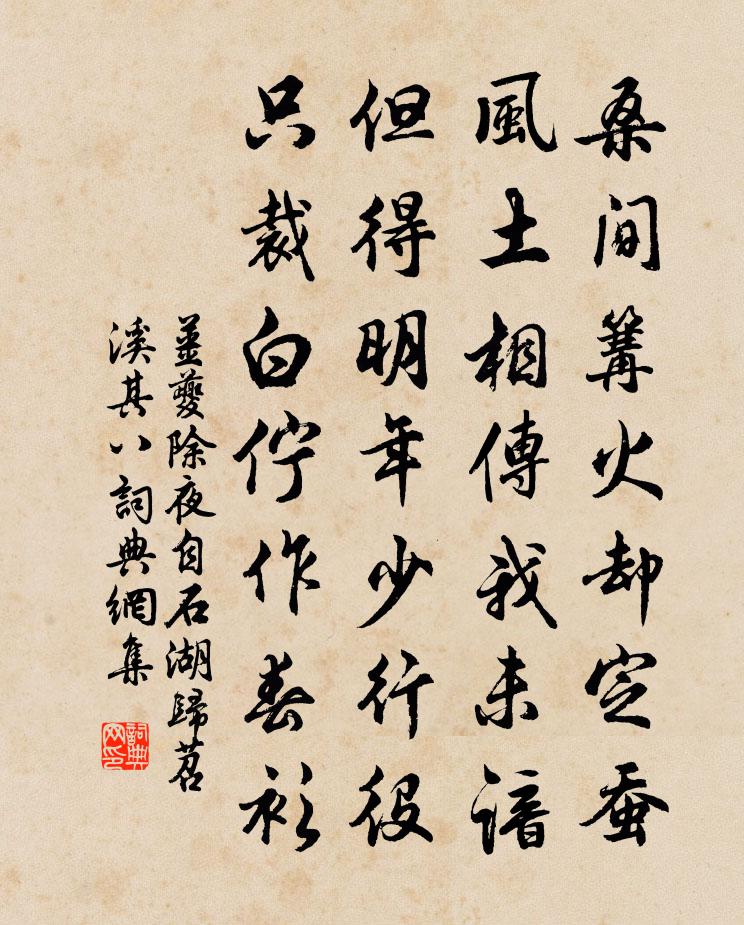 桑間篝火却宜蚕
風土相傳我未諳
但得明年少行役
只裁白佇作春衫
姜夔除夜自石湖歸苕
溪其八詞典網集
詞典网印